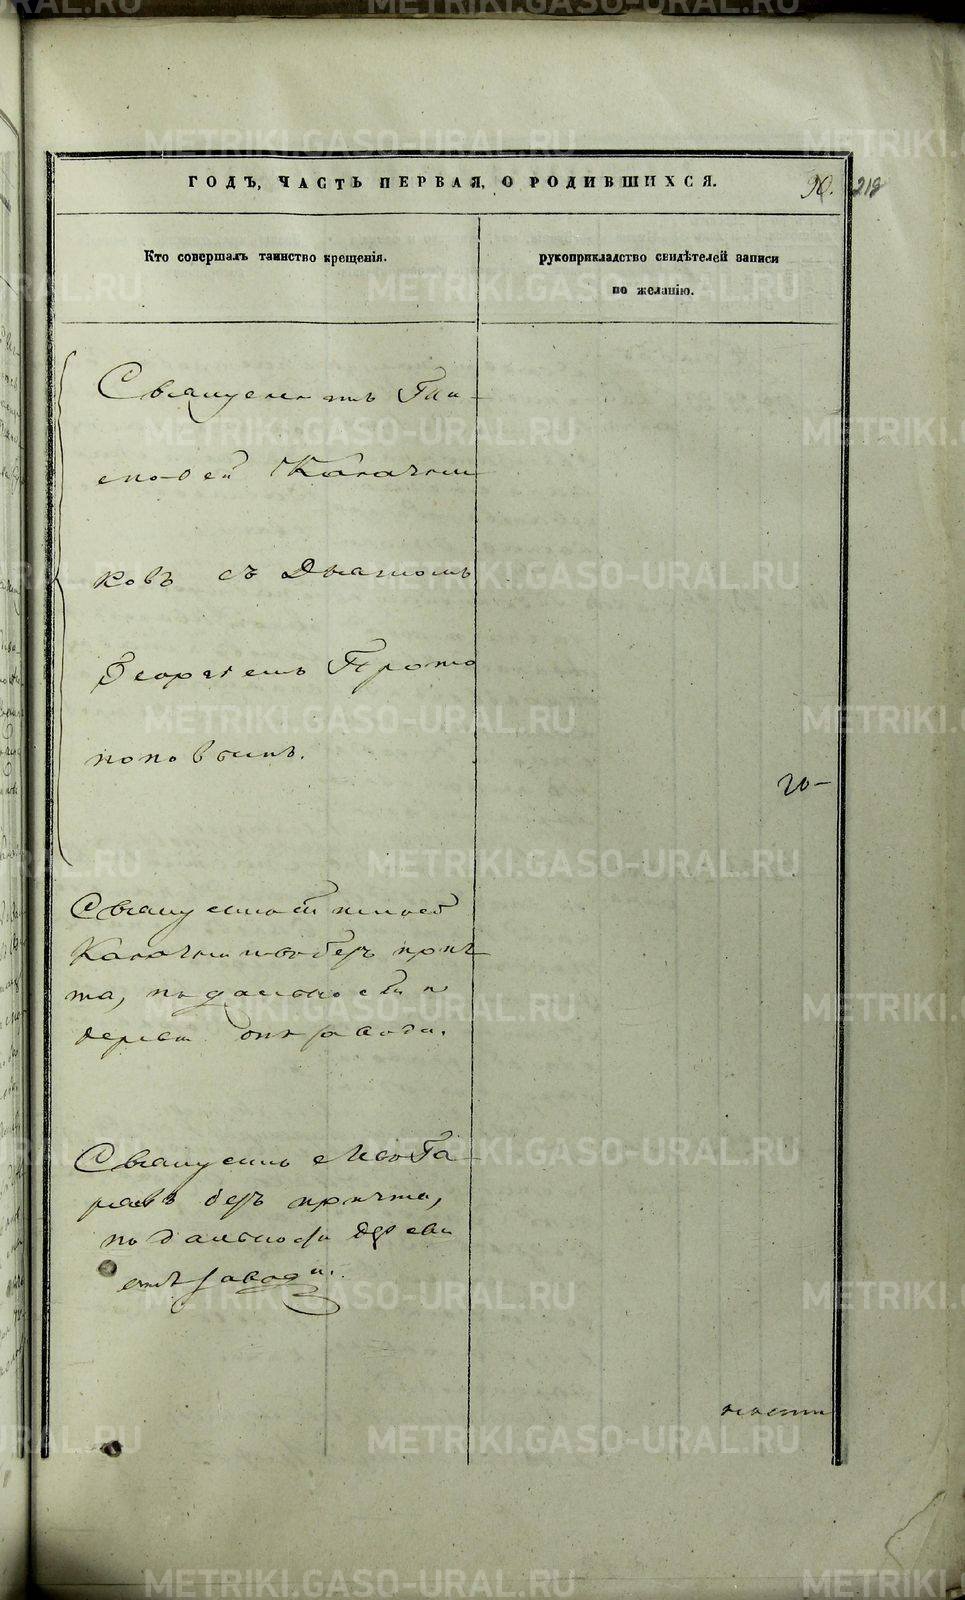 ГОДЪ, ЧАСТЬ ПЕРВАЯ, О РОДИВШИХСЯ.
90. 218
Кто совершалъ таинство крещенія.
рукоприкладство свидѣтелей записи
по желанію.
Священникъ Тим
офей Калачни
ковъ съ Дьякономъ
Георгіемъ Прото
поповымъ.
20-
Священникъ Тимофей
Калачниковъ безъ прич
та, по дальности
деревни отъ завода.
Священникъ
безъ причта,
по дальности деревни
отъ завода.
METRIKI.GASO-URAL.RU